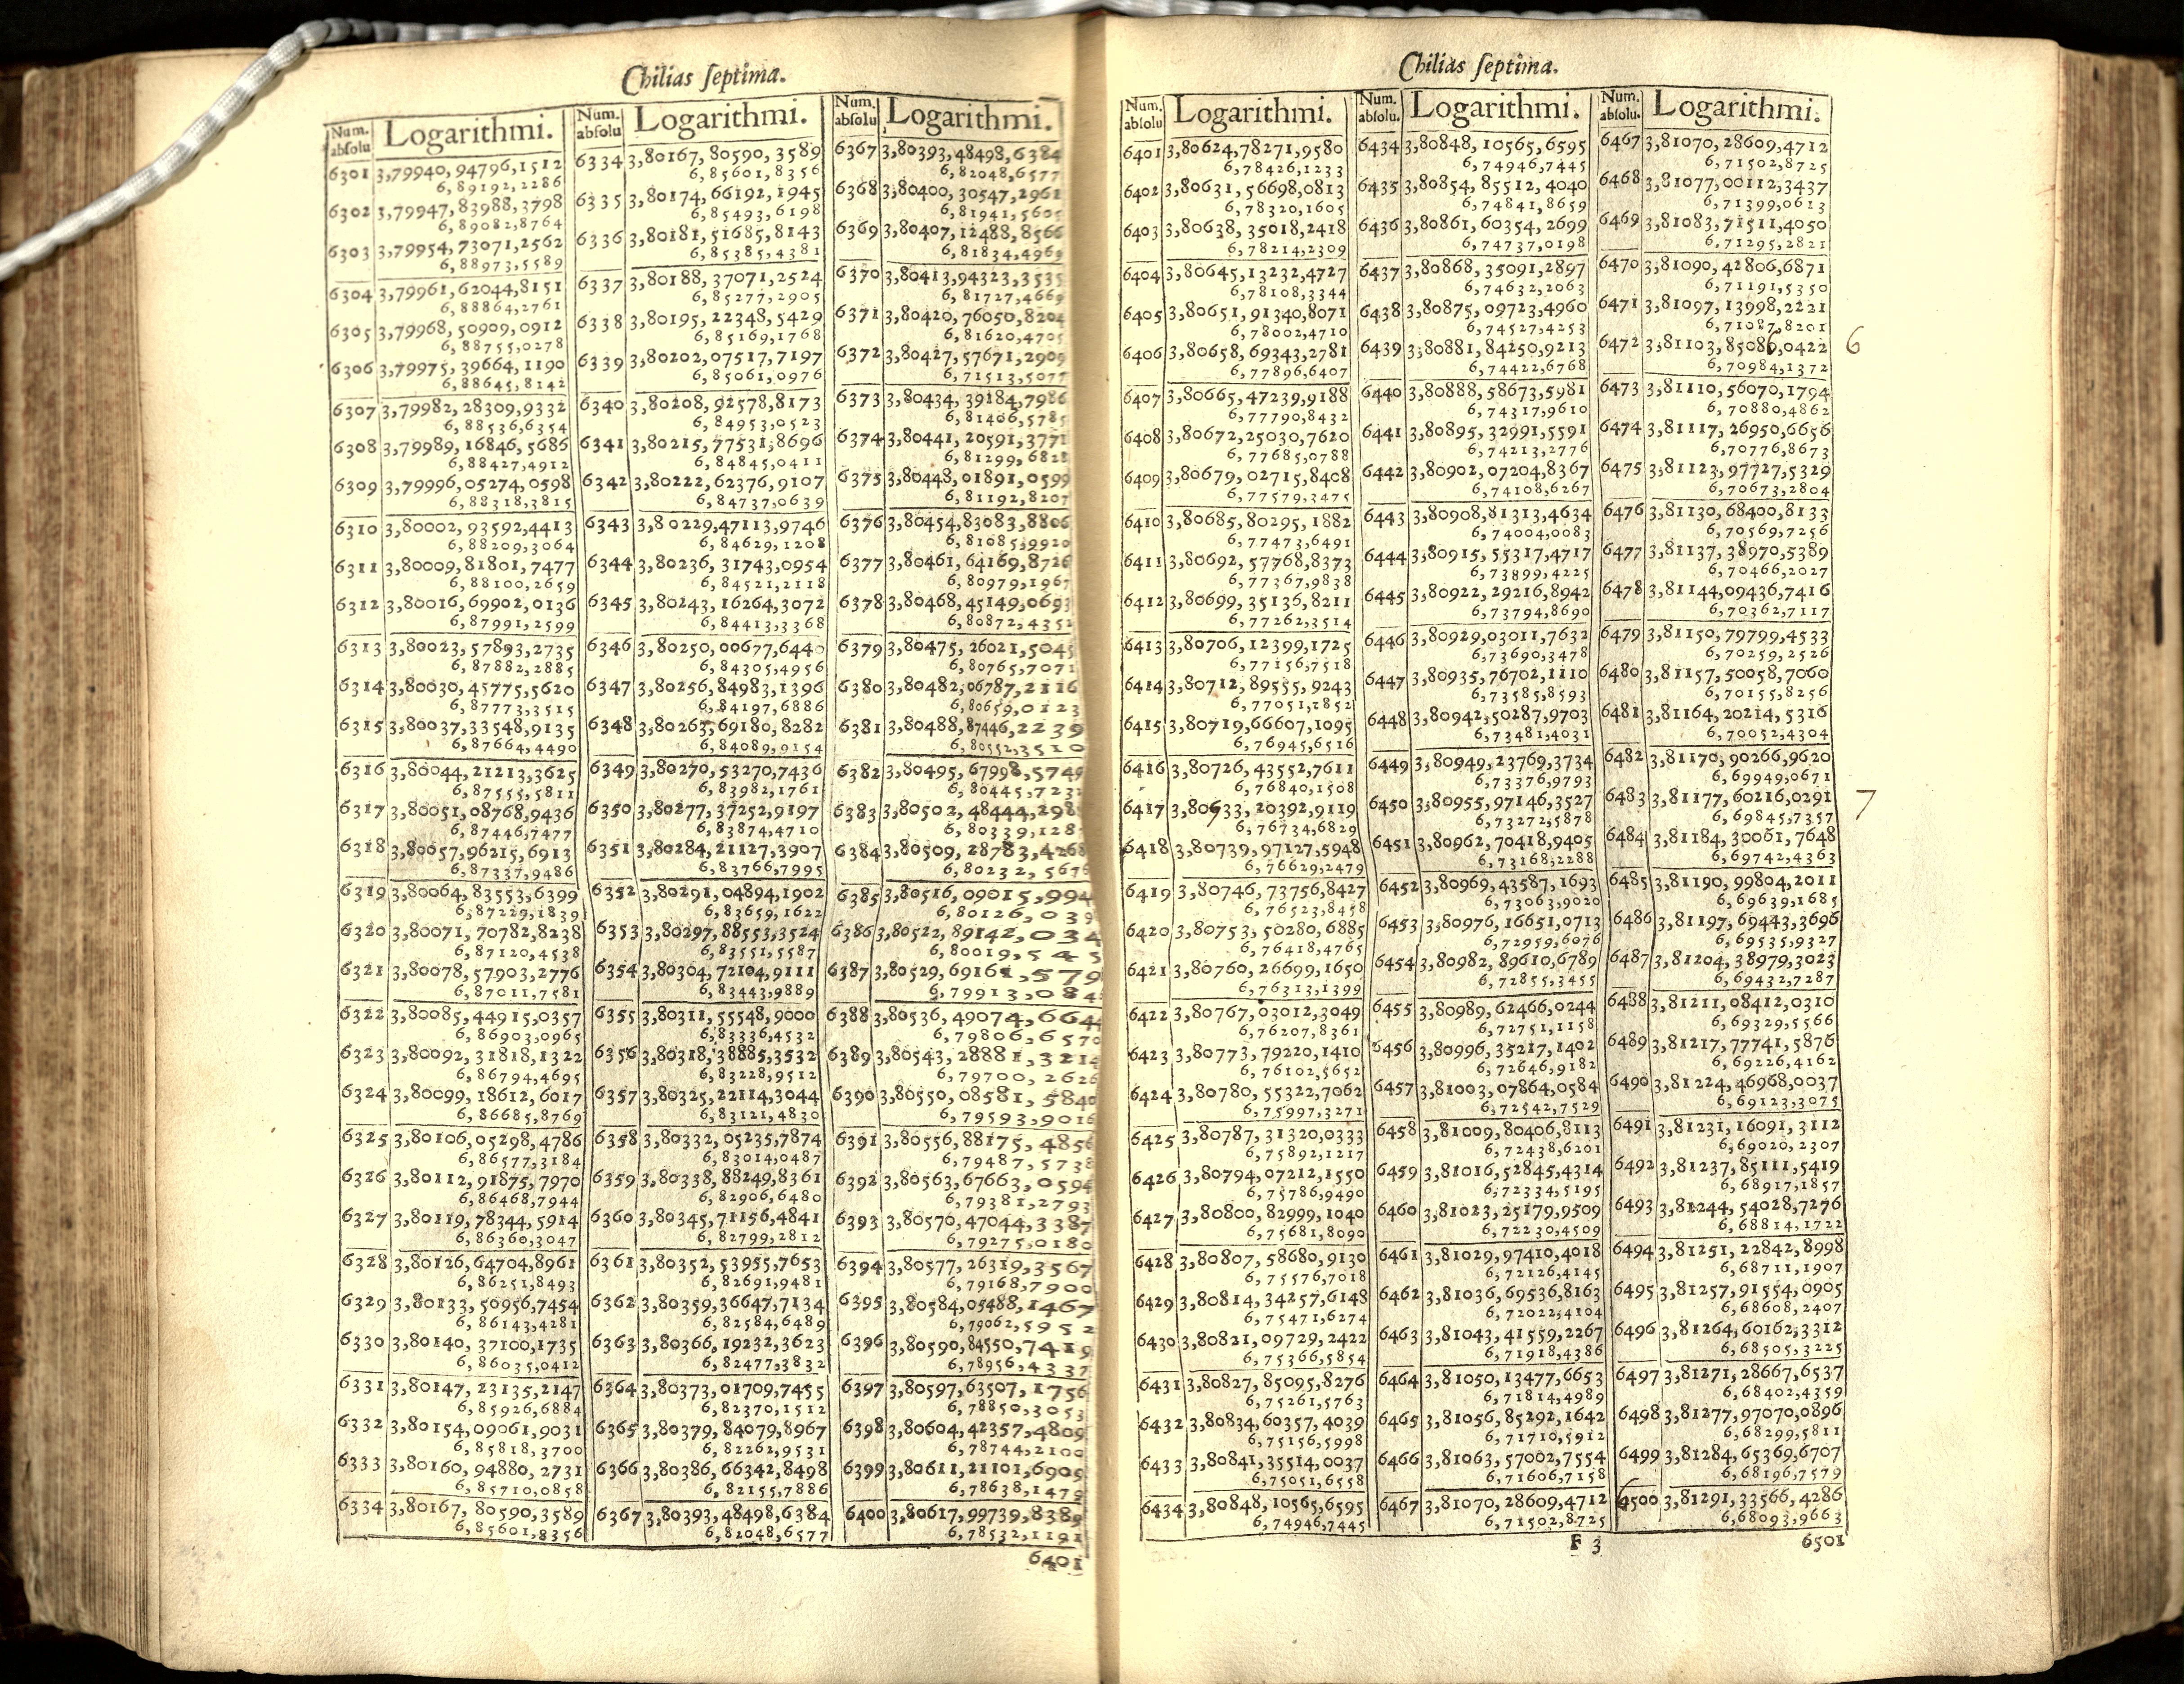 Chilias septima.
Num. absolu Logarithmi.
6301 3,79940,94796,1512
6,89192,2286
6302 3,79947,83988,3798
6,89082,8764
6303 3,79954,73071,2562
6,88973,5589
6304 3,79961,62044,8151
6,88864,2761
6305 3,79968,50909,0912
6,88755,0278
6306 3,79975,39664,1190
6,88645,8142
6307 3,79982,28309,9332
6,88536,6354
6308 3,79989,16846,5686
6,88427,4912
6309 3,79996,05274,0598
6,88318,3815
6310 3,80002,93592,4413
6,88209,3064
6311 3,80009,81801,7477
6,88100,2659
6312 3,80016,69902,0136
6,87991,2599
6313 3,80023,57893,2735
6,87882,2885
6314 3,80030,45775,5620
6,87773,3515
6315 3,80037,33548,9135
6,87664,4490
6316 3,80044,21213,3625
6,87555,5811
6317 3,80051,08768,9436
6,87446,7477
6318 3,80057,96215,6913
6,87337,9486
6319 3,80064,83553,6399
6,87229,1839
6320 3,80071,70782,8238
6,87120,4538
6321 3,80078,57903,2776
6,87011,7581
6322 3,80085,44915,0357
6,86903,0965
6323 3,80092,31818,1322
6,86794,4695
6324 3,80099,18612,6017
6,86685,8769
6325 3,80106,05298,4786
6,86577,3184
6326 3,80112,91875,7970
6,86468,7944
6327 3,80119,78344,5914
6,86360,3047
6328 3,80126,64704,8961
6,86251,8493
6329 3,80133,50956,7454
6,86143,4281
6330 3,80140,37100,1735
6,86035,0412
6331 3,80147,23135,2147
6,85926,6884
6332 3,80154,09061,9031
6,85818,3700
6333 3,80160,94880,2731
6,85710,0858
6334 3,80167,80590,3589
6,85601,8356
Num. absolu Logarithmi.
6334 3,80167,80590,3589
6,85601,8356
6335 3,80174,66192,1945
6,85493,6198
6336 3,80181,51685,8143
6,85385,4381
6337 3,80188,37071,2524
6,85277,2905
6338 3,80195,22348,5429
6,85169,1768
6339 3,80202,07517,7197
6,85061,0976
6340 3,80208,92578,8173
6,84953,0523
6341 3,80215,77531,8696
6,84845,0411
6342 3,80222,62376,9107
6,84737,0639
6343 3,80229,47113,9746
6,84629,1208
6344 3,80236,31743,0954
6,84521,2118
6345 3,80243,16264,3072
6,84413,3368
6346 3,80250,00677,6440
6,84305,4956
6347 3,80256,84983,1396
6,84197,6886
6348 3,80263,69180,8282
6,84089,9154
6349 3,80270,53270,7436
6,83982,1761
6350 3,80277,37252,9197
6,83874,4710
6351 3,80284,21127,3907
6,83766,7995
6352 3,80291,04894,1902
6,83659,1622
6353 3,80297,88553,3524
6,83551,5587
6354 3,80304,72104,9111
6,83443,9889
6355 3,80311,55548,9000
6,83336,4532
6356 3,80318,38885,3532
6,83228,9512
6357 3,80325,22114,3044
6,83121,4830
6358 3,80332,05235,7874
6,83014,0487
6359 3,80338,88249,8361
6,82906,6480
6360 3,80345,71156,4841
6,82799,2812
6361 3,80352,53955,7653
6,82691,9481
6362 3,80359,36647,7134
6,82584,6489
6363 3,80366,19232,3623
6,82477,3832
6364 3,80373,01709,7455
6,82370,1512
6365 3,80379,84079,8967
6,82262,9531
6366 3,80386,66342,8498
6,82155,7886
6367 3,80393,48498,6384
6,82048,6577
Num. absolu Logarithmi.
6367 3,80393,48498,6384
6,82048,6577
6368 3,80400,30547,2961
6,81941,5605
6369 3,80407,12488,8566
6,81834,4969
6370 3,80413,94323,3535
6,81727,4669
6371 3,80420,76050,8204
6,81620,4705
6372 3,80427,57671,2909
6,71513,5077
6373 3,80434,39184,7986
6,81406,5785
6374 3,80441,20591,3771
6,81299,6828
6375 3,80448,01891,0599
6,81192,8207
6376 3,80454,83083,8806
6,81085,9920
6377 3,80461,64169,8726
6,80979,1967
6378 3,80468,45149,0693
6,80872,4352
6379 3,80475,26021,5045
6,80765,7071
6380 3,80482,06787,2116
6,80659,0123
6381 3,80488,87446,2239
6,80552,3510
6382 3,80495,67998,5749
6,80445,7232
6383 3,80502,48444,298
6,80339,128
6384 3,80509,28783,4268
6,80232,567
6385 3,80516,09015,994
6,80126,039
6386 3,80522,89142,034
6,80019,545
6387 3,80529,69161,579
6,79913,084
6388 3,80536,49074,664
6,79806,6570
6389 3,80543,28881,3214
6,79700,2626
6390 3,80550,08581,5840
6,79593,9016
6391 3,80556,88175,4856
6,79487,5738
6392 3,80563,67663,0594
6,79381,2793
6393 3,80570,47044,3387
6,79275,0180
6394 3,80577,26319,3567
6,79168,7900
6395 3,80584,05488,1467
6,79062,5952
6396 3,80590,84550,7419
6,78956,4337
6397 3,80597,63507,1756
6,78850,3053
6398 3,80604,42357,4809
6,78744,2100
6399 3,80611,21101,6909
6,78638,1479
6400 3,80617,99739,8389
6,78532,1191
6401
Chilias septima.
Num. absolu Logarithmi.
6401 3,80624,78271,9580
6,78426,1233
6402 3,80631,56698,0813
6,78320,1605
6403 3,80638,35018,2418
6,78214,2309
6404 3,80645,13232,4727
6,78108,3344
6405 3,80651,91340,8071
6,78002,4710
6406 3,80658,69343,2781
6,77896,6407
6407 3,80665,47239,9188
6,77790,8432
6408 3,80672,25030,7620
6,77685,0788
6409 3,80679,02715,8408
6,77579,3475
6410 3,80685,80295,1882
6,77473,6491
6411 3,80692,57768,8373
6,77367,9838
6412 3,80699,35136,8211
6,77262,3514
6413 3,80706,12399,1725
6,77156,7518
6414 3,80712,89555,9243
6,77051,1852
6415 3,80719,66607,1095
6,76945,6516
6416 3,80726,43552,7611
6,76840,1508
6417 3,80933,20392,9119
6,76734,6829
6418 3,80739,97127,5948
6,76629,2479
6419 3,80746,73756,8427
6,76523,8458
6420 3,80753,50280,6885
6,76418,4765
6421 3,80760,26699,1650
6,76313,1399
6422 3,80767,03012,3049
6,76207,8361
6423 3,80773,79220,1410
6,76102,5652
6424 3,80780,55322,7062
6,75997,3271
6425 3,80787,31320,0333
6,75892,1217
6426 3,80794,07212,1550
6,75786,9490
6427 3,80800,82999,1040
6,75681,8090
6428 3,80807,58680,9130
6,75576,7018
6429 3,80814,34257,6148
6,75471,6274
6430 3,80821,09729,2422
6,75366,5854
6431 3,80827,85095,8276
6,75261,5763
6432 3,80834,60357,4039
6,75156,5998
6433 3,80841,35514,0037
6,75051,6558
6434 3,80848,10565,6595
6,74946,7445
Num. absolu. Logarithmi.
6434 3,80848,10565,6595
6,74946,7445
6435 3,80854,85512,4040
6,74841,8659
6436 3,80861,60354,2699
6,74737,0198
6437 3,80868,35091,2897
6,74632,2063
6438 3,80875,09723,4960
6,74527,4253
6439 3,80881,84250,9213
6,74422,6768
6440 3,80888,58673,5981
6,74317,9610
6441 3,80895,32991,5591
6,74213,2776
6442 3,80902,07204,8367
6,74108,6267
6443 3,80908,81313,4634
6,74004,0083
6444 3,80915,55317,4717
6,73899,4225
6445 3,80922,29216,8942
6,73794,8690
6446 3,80929,03011,7632
6,73690,3478
6447 3,80935,76702,1110
6,73585,8593
6448 3,80942,50287,9703
6,73481,4031
6449 3,80949,23769,3734
6,73376,9793
6450 3,80955,97146,3527
6,73272,5878
6451 3,80962,70418,9405
6,73168,2288
6452 3,80969,43587,1693
6,73063,9020
6453 3,80976,16651,0713
6,72959,6076
6454 3,80982,89610,6789
6,72855,3455
6455 3,80989,62466,0244
6,72751,1158
6456 3,80996,35217,1402
6,72646,9182
6457 3,81003,07864,0584
6,72542,7529
6458 3,81009,80406,8113
6,72438,6201
6459 3,81016,52845,4314
6,72334,5195
6460 3,81023,25179,9509
6,72230,4509
6461 3,81029,97410,4018
6,72126,4145
6462 3,81036,69536,8163
6,72022,4104
6463 3,81043,41559,2267
6,71918,4386
6464 3,81050,13477,6653
6,71814,4989
6465 3,81056,85292,1642
6,71710,5912
6466 3,81063,57002,7554
6,71606,7158
6467 3,81070,28609,4712
6,71502,8725
Num. absolu. Logarithmi.
6467 3,81070,28609,4712
6,71502,8725
6468 3,81077,00112,3437
6,71399,0613
6469 3,81083,71511,4050
6,71295,2821
6470 3,81090,42806,6871
6,71191,5350
6471 3,81097,13998,2221
6,71087,8201
6472 3,81103,85086,0422 6
6,70984,1372
6473 3,81110,56070,1794
6,70880,4862
6474 3,81117,26950,6656
6,70776,8673
6475 3,81123,97727,5329
6,70673,2804
6476 3,81130,68400,8133
6,70569,7256
6477 3,81137,38970,5389
6,70466,2027
6478 3,81144,09436,7416
6,70362,7117
6479 3,81150,79799,4533
6,70259,2526
6480 3,81157,50058,7060
6,70155,8256
6481 3,81164,20214,5316
6,70052,4304
6482 3,81170,90266,9620
6,69949,0671
6483 3,81177,60216,0291 7
6,69845,7357
6484 3,81184,30061,7648
6,69742,4363
6485 3,81190,99804,2011
6,69639,1685
6486 3,81197,69443,3696
6,69535,9327
6487 3,81204,38979,3023
6,69432,7287
6488 3,81211,08412,0310
6,69329,5566
6489 3,81217,77741,5876
6,69226,4162
6490 3,81224,46968,0037
6,69123,3075
6491 3,81231,16091,3112
6,69020,2307
6492 3,81237,85111,5419
6,68917,1857
6493 3,81244,54028,7276
6,68814,1722
6494 3,81251,22842,8998
6,68711,1907
6495 3,81257,91554,0905
6,68608,2407
6496 3,81264,60162,3312
6,68505,3225
6497 3,81271,28667,6537
6,68402,4359
6498 3,81277,97070,0896
6,68299,5811
6499 3,81284,65369,6707
6,68196,7579
6500 3,81291,33566,4286
6,68093,9663
F 3
6501